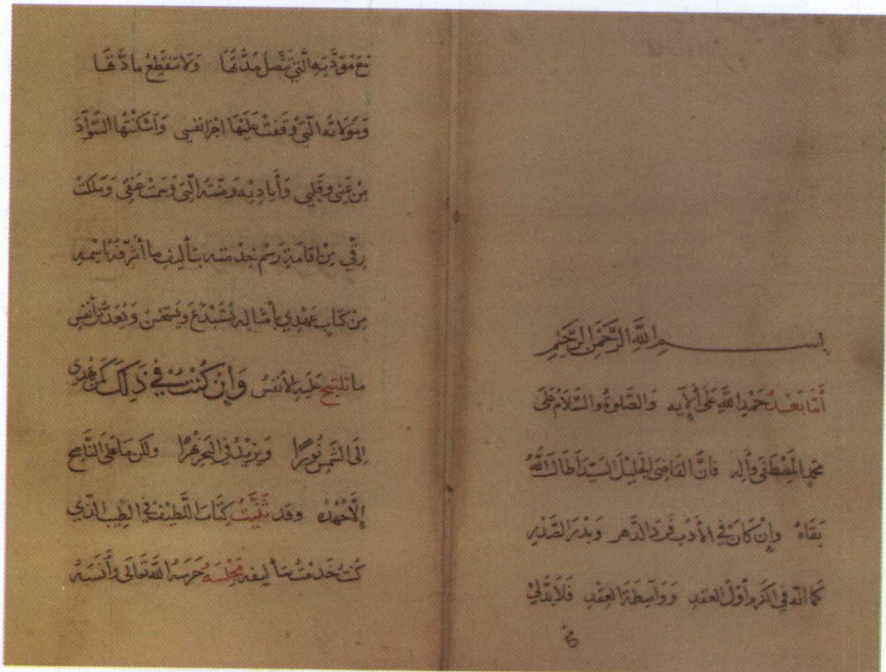 بسم الله الرحمن الرحيم
أما بعد حمد الله على آلايه والصلوة والسلام على
محمد المصطفى وآله فان القاضي الجليل السيد اطال الله
بقاه وإن كان في الأدب فرد الدهر وبدر الصدر
كما انه في الكرم أول العقد وواسطة العقد فلا بد لي
مع مودته التي تتصل مدتها ولا تنقطع مادتها
وموالاته التي وقفت عليها اجزا نفسي واسكنتها السواد
من عيني وقلبي وأياديه ومننه التي وسمت عنقي وملكت
رقي من اقامة رسم خدمته بتأليف ما أشرفه باسمه
من كتاب عهدي بأمثاله يستبدع ويستحسن ويعد من أنفس
ما تلتبح عليه الأنفس وإن كنت في ذلك كمن يهدي
إلى الشمس نورا ويزيد في البحر نهرا ولكن ما على الناصح
إلا جهده وقد ثنيت كتاب اللطيف في الطيب الذي
كنت خدمت بتأليفه مجلسه حرسه الله تعالى وآنسه